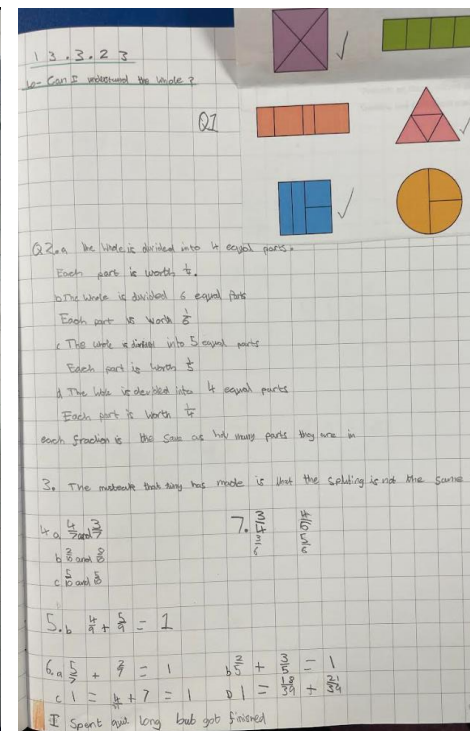 13.3.23
Lo- Can I understand the whole?
Q1
Q2.a The whole is divided into 4 equal parts.
Each part is worth 1/4.
b The whole is divided 6 equal parts
Each part is worth 1/6
c The whole is divided into 5 equal parts
Each part is worth 1/5
d The whole is devided into 4 equal parts
Each part is worth 1/4
each fraction is the same as how many parts they are in
3. The that tiny has made is that the is not the same
4a 4/7 and 3/7
7. 3/4 4/6
3/6 5/6
b and
c and
5.b 4/9 + 5/9 = 1
6.a 5/7 + 2/7 = 1
b 2/5 + 3/5 = 1
c 1 = + = 1
D 1 = 18/39 + 21/39
I Spent long but got finished